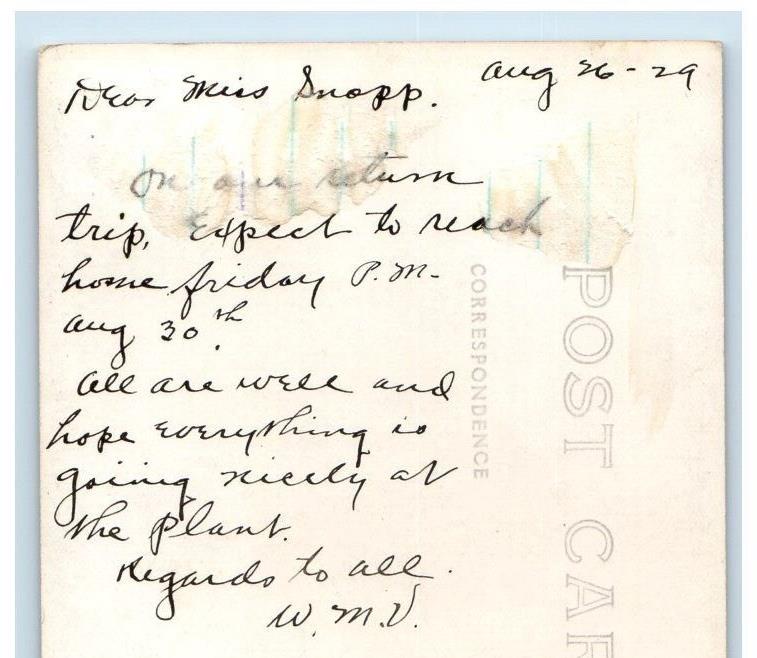 Aug 26-29
Dear Miss Snopp.
On our return
trip, Expect to reach
home friday P.M.
Aug 30th.
All are well and
hope everything is
going nicely at
the plant.
Regards to all.
W.M.V.
CORRESPONDENCE
POST CAR